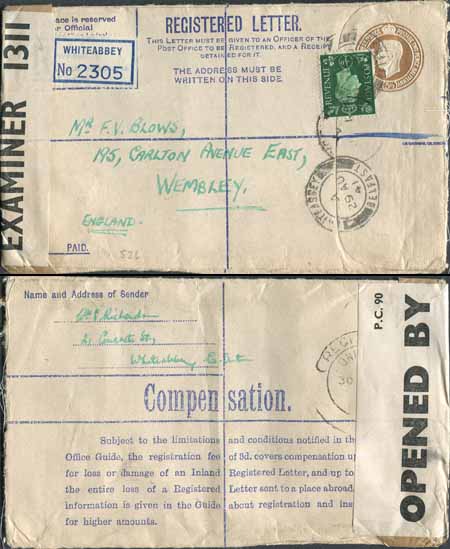 EXAMINER 1311
ace is reserved
or Official
WHITEABBEY
No 2305
REGISTERED LETTER.
THIS LETTER MUST BE GIVEN TO AN OFFICER OF THE
POST OFFICE TO BE REGISTERED, AND A RECEIPT
OBTAINED FOR IT.
THE ADDRESS MUST BE
WRITTEN ON THIS SIDE.
REVENUE
Mr F.V. BLOWS,
195, CARLTON AVENUE EAST,
WEMBLEY.
ENGLAND.
PAID.
526
WHITEABBEY
BELFAST
29 AU
41
Name and Address of Sender
Whiteabbey
P.C. 90
OPENED BY
30
Compensation.
Subject to the limitations and conditions notified in th
Office Guide, the registration fee of 3d. covers compensation u
for loss or damage of an Inland Registered Letter, and up to
the entire loss of a Registered Letter sent to a place abroad,
information is given in the Guide about registration and ins
for higher amounts.